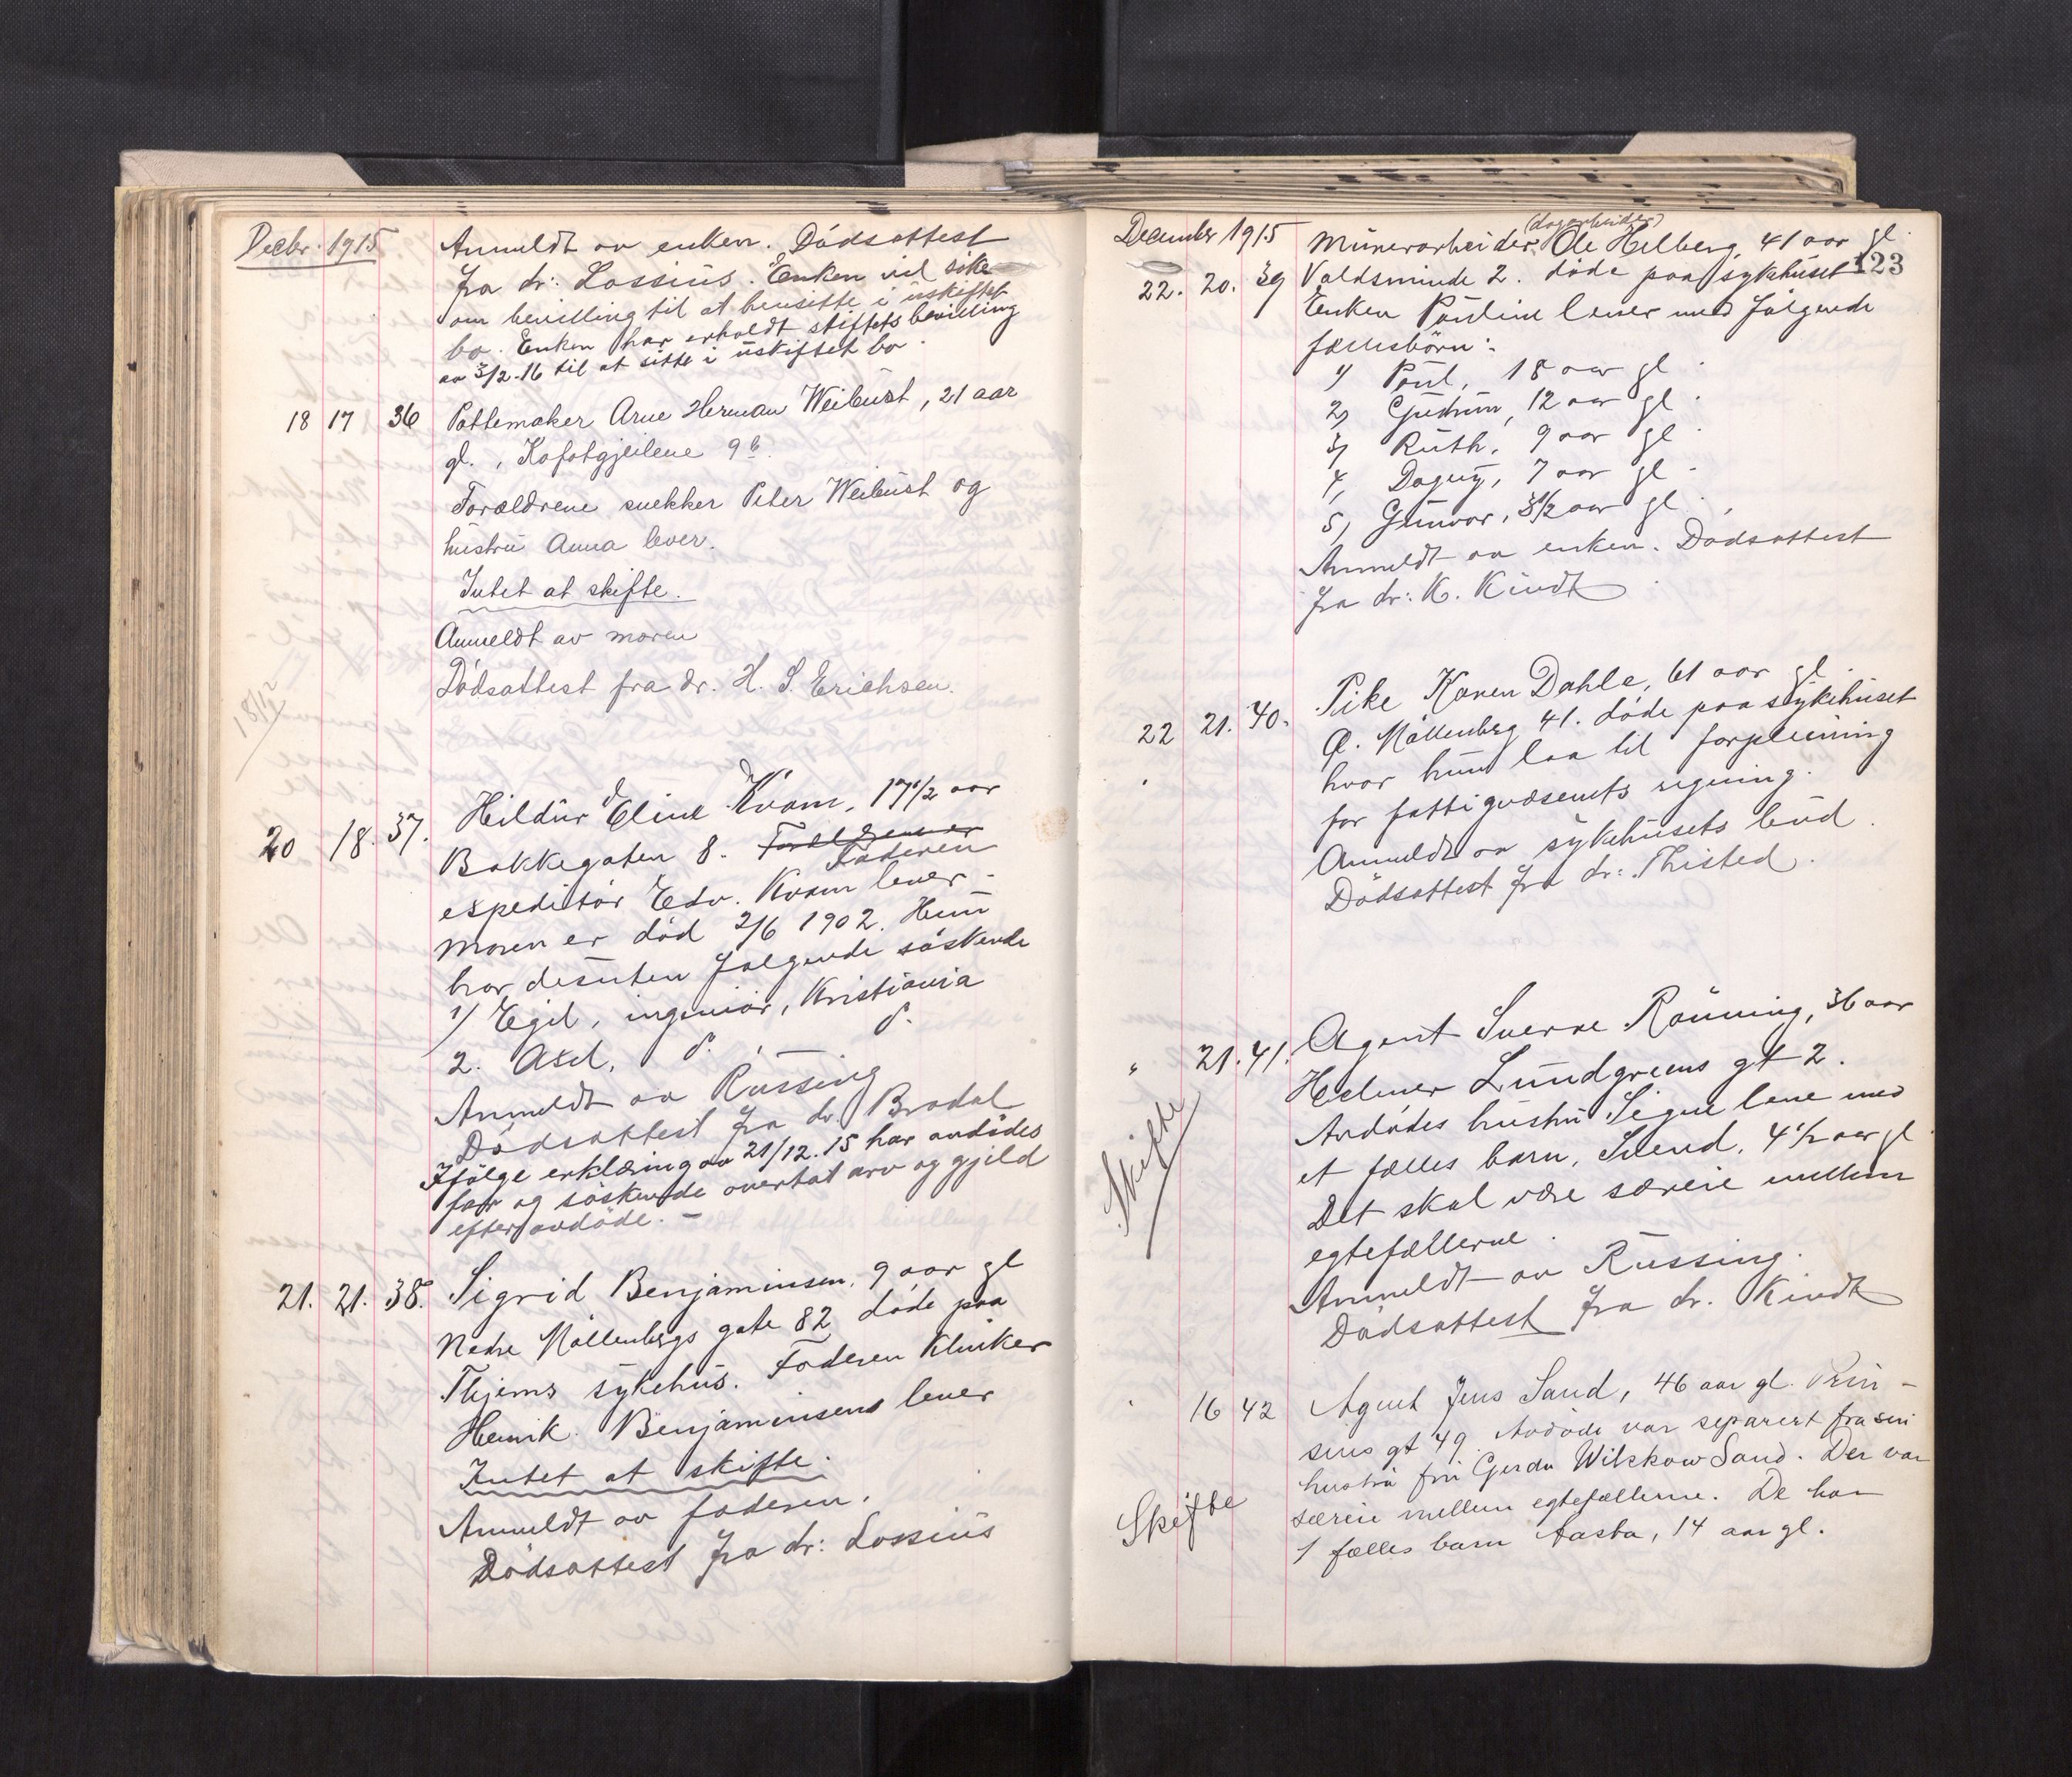 Decbr. 1915
Anmeldt av enken. Dödsattest
fra dr: Lossius. Enken vil söke
om bevilling til at hensitte i uskiftet
bo. Enken har erholdt skiftets bevilling
av 3/2-16 til at sitte i uskiftet bo.
18 17 36 Pottemaker Arne Herman Weibust, 21 aar
gl., Kafotgjeilene 9b.
Forældrene snekker Peter Weibust og
hustru Anna lever.
Intet at skifte.
Anmeldt av moren
Dödsattest fra dr. H. S. Erichsen.
18/12
20 18. 37. Hildur Eline Kvam, 17 1/2 aar
Bakkegaten 8. Faderen
expeditör Edv. Kvam lever.
Moren er död 2/6 1902. Hun
har desuten følgende söskende
1) Egil, ingeniör, Kristiania
2. Axel, d. , d.
Anmeldt av Røssing
Dödsattest fra dr. Bradal
Ifölge erklæring av 21/12.15 har avdödes
far og söskende overtat arv og gjeld
efter avdöde. -
21. 21. 38. Sigrid Benjaminsen, 9 aar gl
Nedre Möllenbergs gate 82 döde paa
Thjems sykehus. Faderen klinker
Henrik Benjaminsens lever
Intet at skifte.
Anmeldt av faderen.
Dödsattest fra dr: Lossius
December 1915
123
(dagarbeider)
Murerarbeider Ole Helberg, 41 aar gl.
22. 20. 39 Valdsminde 2. døde paa sykehuset
Enken Pauline lever med følgende
fællesbörn:
1) Paul, 18 aar gl.
2) Gudrun, 12 aar gl.
3) Ruth, 9 aar gl.
4, Dagny, 7 aar gl.
5) Gunvor, 3 1/2 aar gl.
Anmeldt av enken. Dødsattest
fra dr: K. Kindt.
22 21. 40. Pike Karen Dahle, 61 aar gl.
Ø. Möllenberg 41. döde paa sykehuset
hvor hun laa til forpleining
for fattigvæsenets regning.
Anmeldt av sykehusets bud.
Dödsattest fra dr: Thisted.
" 21. 41. Agent Sverre Rönning, 36 aar
Helmer Lundgreens gt 2.
Avdödes hustru Signe leve med
et fælles barn, Svend, 4 1/2 aar gl.
Det skal være særeie mellem
egtefællerne.
Anmeldt av Røssing.
Dødsattest fra dr. Kindt
Skifte
16 42 Agent Jens Sand, 46 aar gl. Prin-
sens gt 49. Avdöde var separert fra sin
hustru fru Gerda Wilckow Sand. Der var
særeie mellem egtefællerne. De har
1 fælles barn Aasta, 14 aar gl.
Skifte